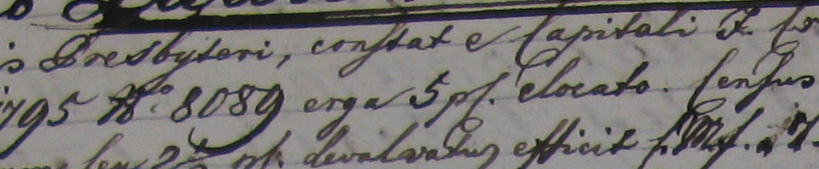 s Presbyteri, constat e Capitali F. Co
1795 No. 8089 erga 5 pf. elocato. Census
seu 2½ pf. devalvatus efficit f. Mf. a 7.